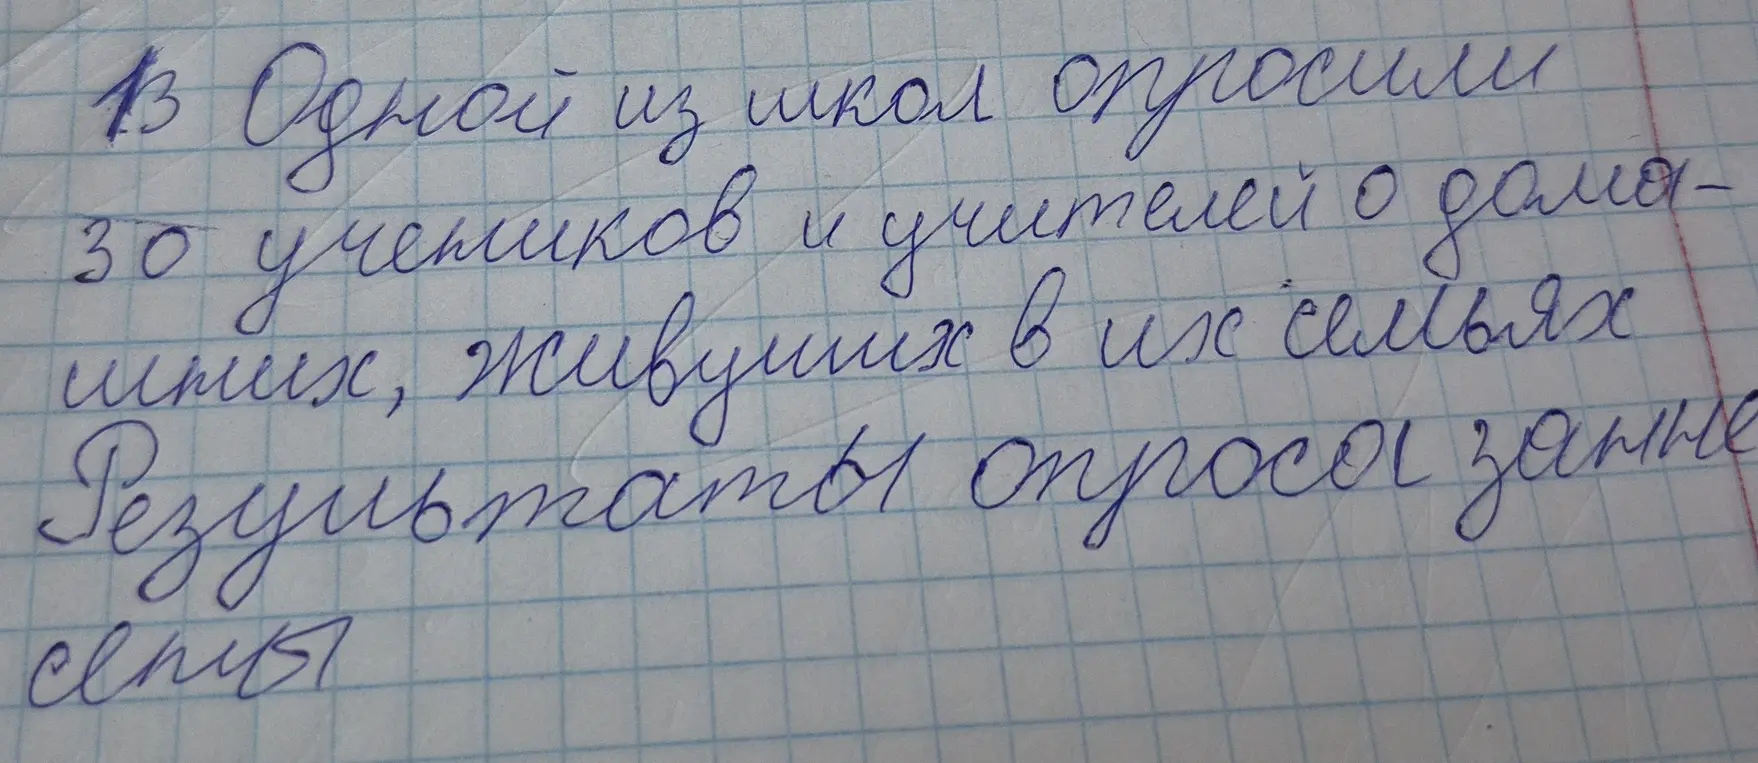 В Одной из школ опросили
30 учеников и учителей о дома-
шних, живущих в их семьях
Результаты опроса занне
сены